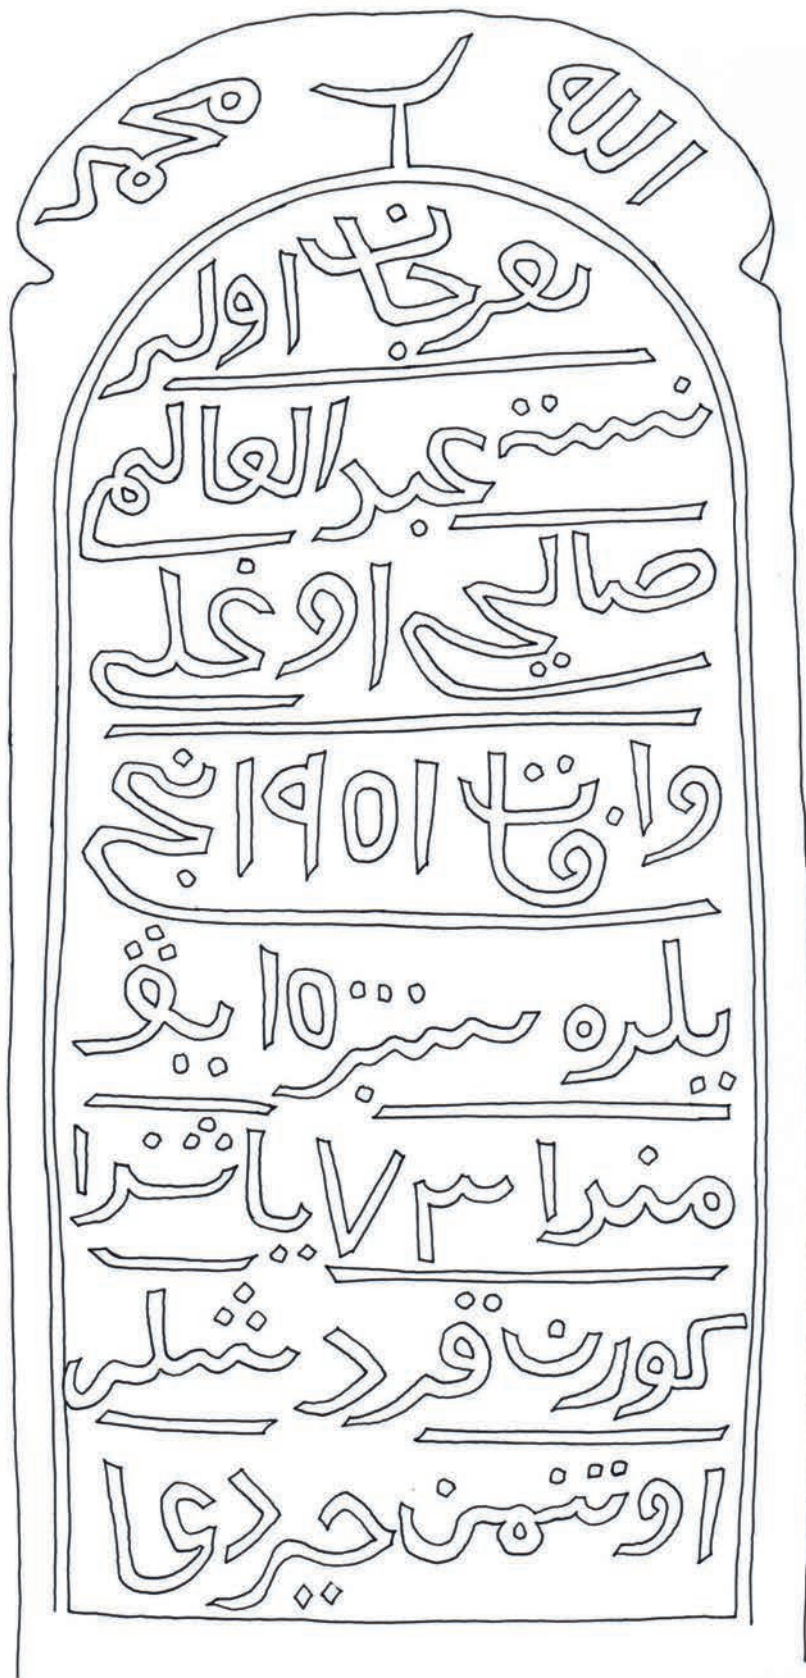 الله محمد
اولر
عبر العالمي
صالحي اوغلي
وافات ١٩٥١ نجي
يلره سنتبر ١٥
منرا ٧٣ ياشرا
كورن قردشلر
اوتنمن حيردعا